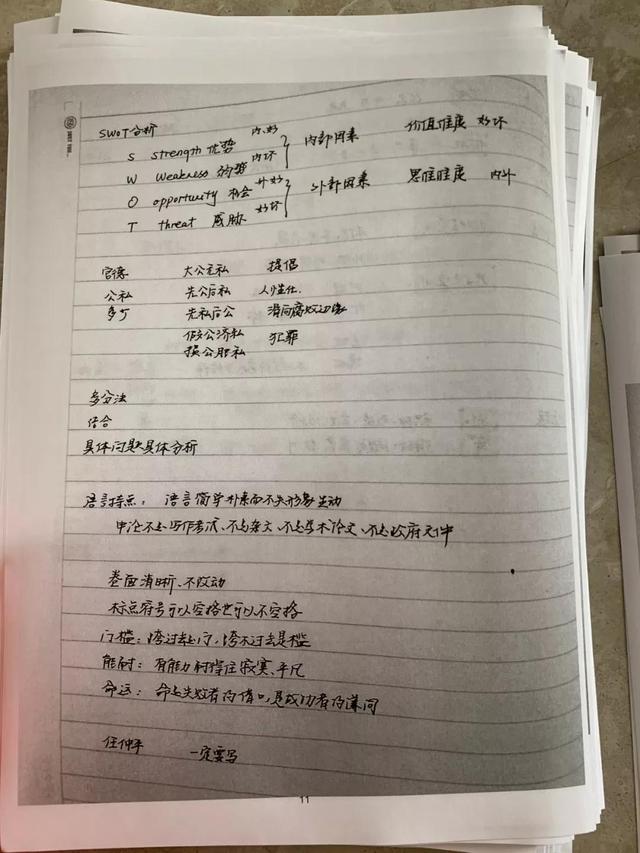 SWOT分析
S strength 优势 内、好
W weakness 弱势 内坏 内部因素 价值维度 好坏
O opportunity 机会 外好
T threat 威胁 好坏 外部因素 思维维度 内外
官德 大公无私 提倡
公私 先公后私 人性化.
多少 先私后公 滑向腐败边缘
假公济私 犯罪
损公肥私
多分法
结合
具体问题具体分析
语言特点： 语言简单朴素而不失形象生动
申论不是写作考试、不是杂文、不是学术论文、不是政府文件
卷面清晰、不改动
标点符号可以空格也可以不空格
门槛：跨过去是门，跨不过去是槛
能耐：有能力耐得住寂寞、平凡
命运：命是失败者的借口，是成功者的谦词
任仲平 一定要写
11